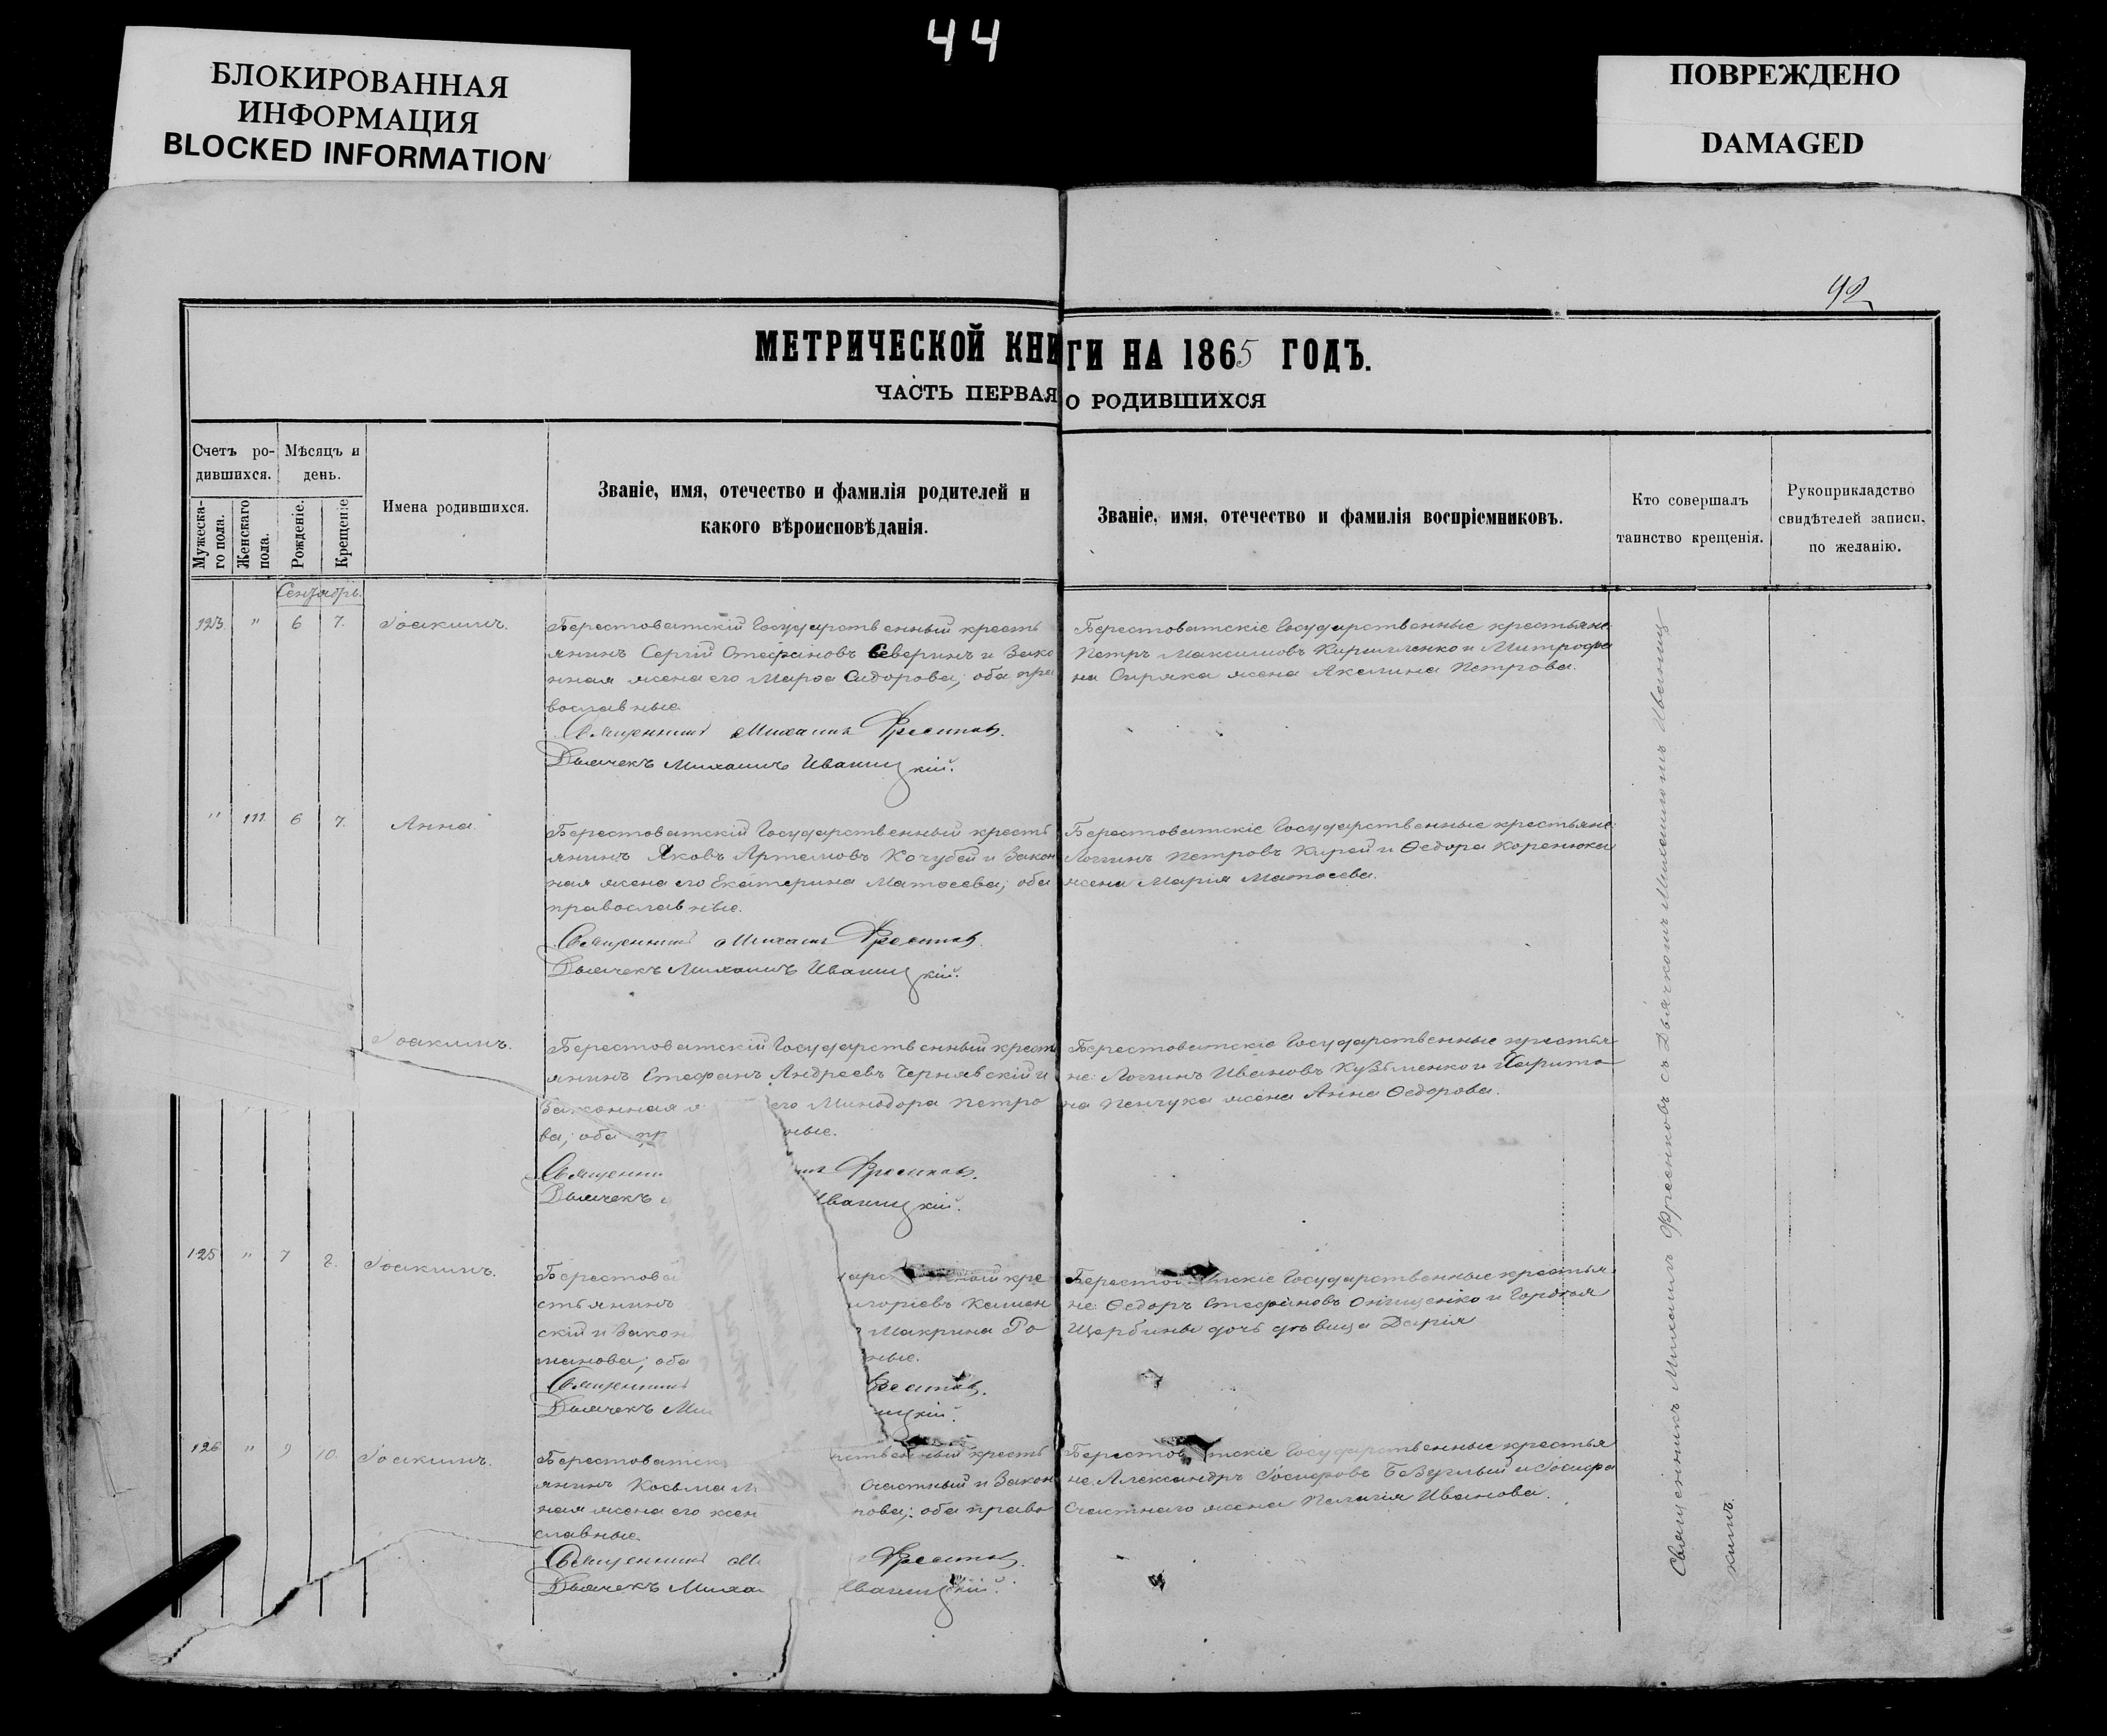 44
БЛОКИРОВАННАЯ
ИНФОРМАЦИЯ
BLOCKED INFORMATION
ПОВРЕЖДЕНО
DAMAGED
92
МЕТРИЧЕСКОЙ КНИГИ НА 1865 ГОДЪ.
ЧАСТЬ ПЕРВАЯ О РОДИВШИХСЯ
Счетъ ро-
дившихся.
Мужеска-
го пола.
Женскаго
пола.
Мѣсяцъ и
день.
Рожденіе.
Крещеніе
Имена родившихся.
Званіе, имя, отечество и фамилія родителей и
какого вѣроисповѣданія.
Званіе, имя, отечество и фамилія воспріемниковъ.
Кто совершалъ
таинство крещенія.
Рукоприкладство
свидѣтелей записи,
по желанію.
Сентябрь.
123. " 6 7. Іоакимъ.
Берестоватскій Государственный кресть
янинъ Сергій Стефановъ Северинъ и Зако
нная жена его Марѳа Сидорова; оба пра
вославные.
Священникъ Михаилъ
Дьячекъ Михаилъ Иваницкій.
Берестоватскіе Государственные крестьяне:
Петръ Максимовъ Кириленко и Митрофа
на Сиряка жена Акилина Петрова.
" 111. 6 7. Анна.
Берестоватскій Государственный кресть
янинъ Яковъ Артемовъ Кочубей и Закон
ная жена его Екатерина Матѳеева; оба
православные.
Священникъ Михаилъ
Дьячекъ Михаилъ Иваницкій.
Берестоватскіе Государственные крестьяне:
Логгинъ Петровъ Кирей и Ѳедора Коренюка
жена Марія Матѳеева.
Іоакимъ.
Берестоватскій Государственный кресть
янинъ Стефанъ Андреевъ Чернявскій и
Законная его Минодора Петро
ва; оба пр ные.
Священни
Дьячекъ Иваницкій.
Берестоватскіе Государственные крестья
не: Логгинъ Ивановъ Кузьменко и Харито
на Пенчука жена Анна Ѳедорова.
125 " 7 8. Іоакимъ.
Берестова дарс ный кре
стьянинъ игоріевъ Камен
скій и Закон Макрина Ро
манова; оба ные.
Священникъ
Дьячекъ Ми ицкій.
Берестоватскіе Государственные крестья
не: Ѳедоръ Стефановъ Онищенко и Гордѣя
Щербины дочь дѣвица Дарія
126 " 9 10. Іоакимъ.
Берестоватск рственный кресть
янинъ Косьма Счастный и Закон
ная жена его Ксен пова; оба право
славные.
Священникъ М
Дьячекъ Миха Иваницкій.
Берестоватскіе Государственные крестья
не: Александръ Іосифовъ Безуглый и Іосифа
Счастнаго жена Пелагія Иванова.
Священникъ Михаилъ съ Дьячкомъ Михаиломъ Иваниц
кимъ.